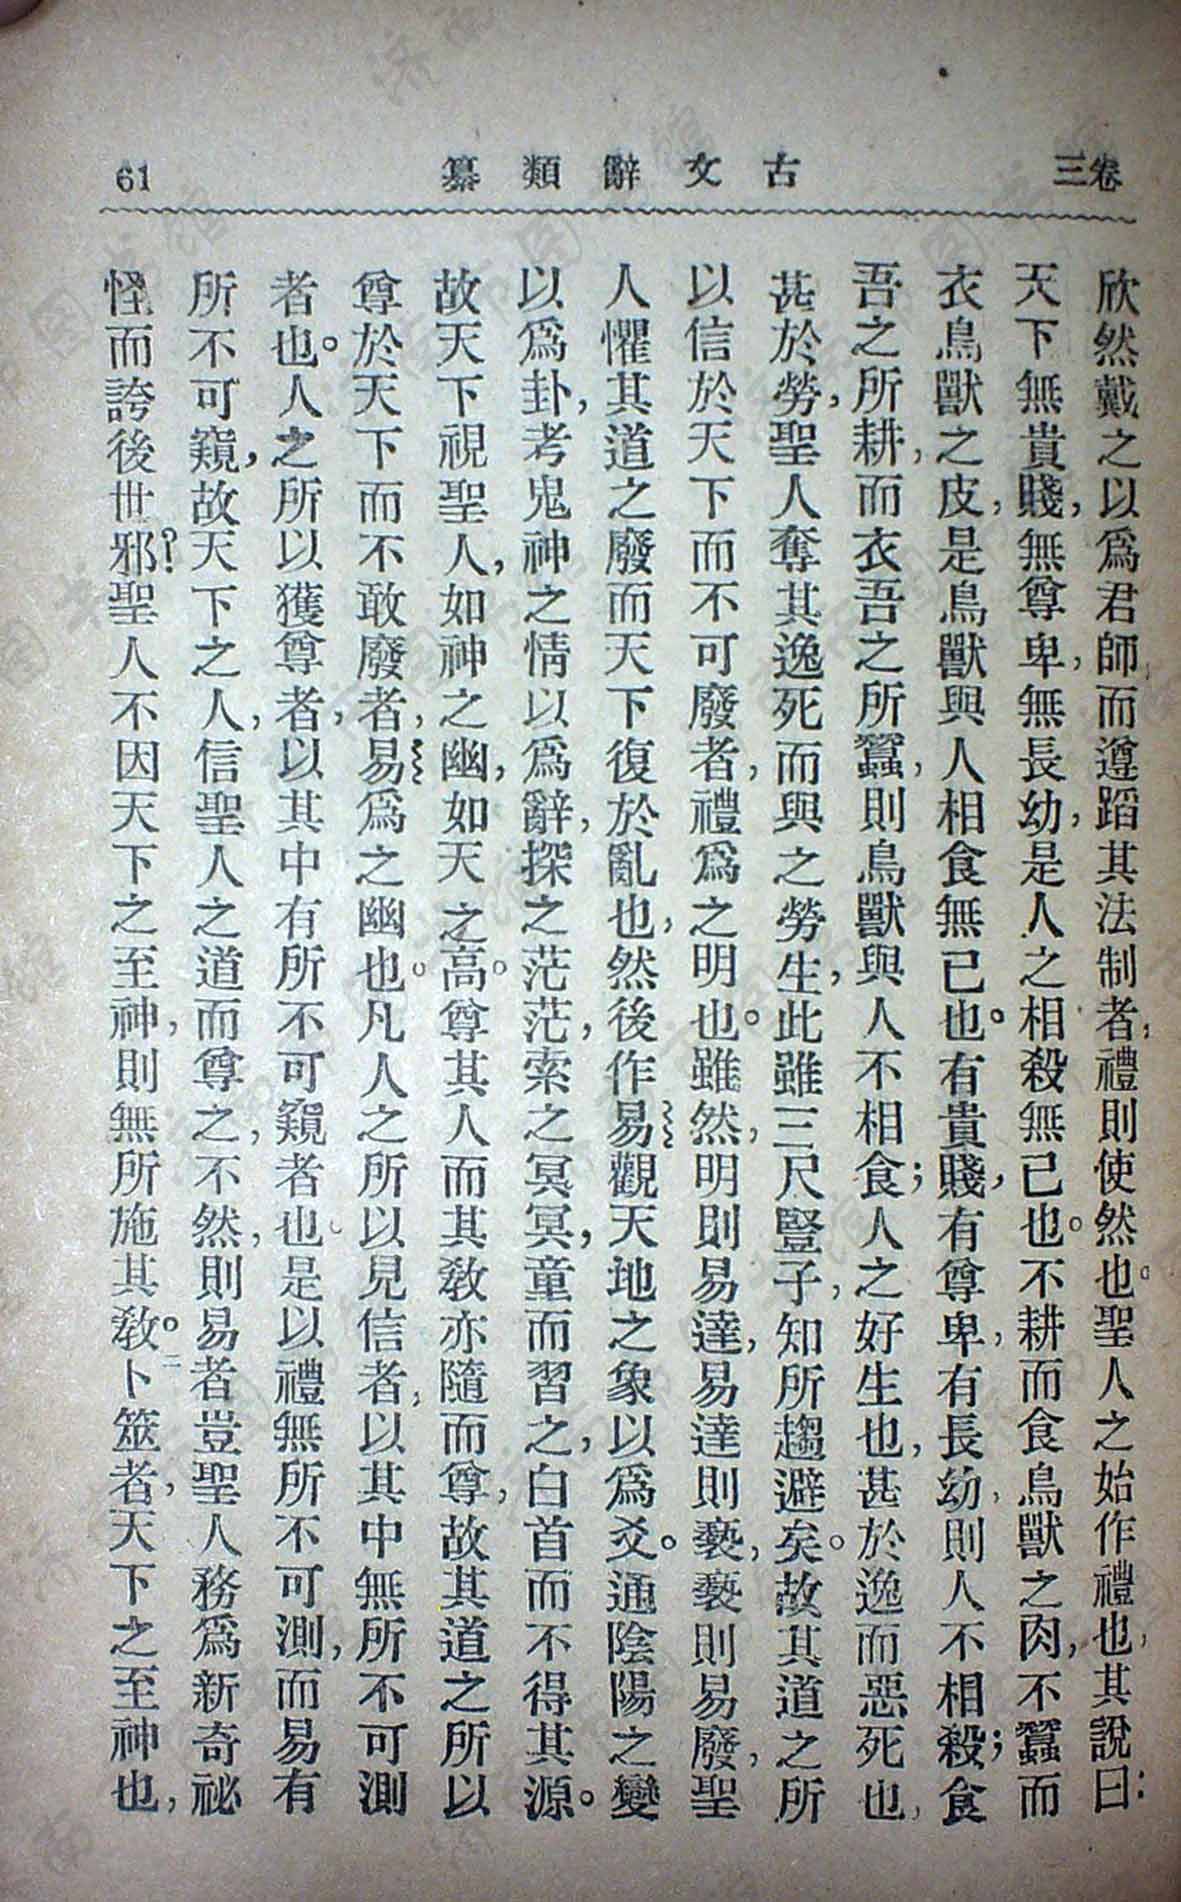 卷三
古文辭類纂
61
欣然戴之以爲君師,而遵蹈其法制者,禮則使然也。聖人之始作禮也,其說曰:
天下無貴賤,無尊卑,無長幼,是人之相殺無已也。不耕而食鳥獸之肉,不蠶而
衣鳥獸之皮,是鳥獸與人相食無已也。有貴賤,有尊卑,有長幼,則人不相殺;食
吾之所耕,而衣吾之所蠶,則鳥獸與人不相食;人之好生也,甚於逸而惡死也,
甚於勞,聖人奪其逸死而與之勞生,此雖三尺豎子,知所趨避矣。故其道之所
以信於天下而不可廢者,禮爲之明也。雖然,明則易達,易達則褻,褻則易廢,聖
人懼其道之廢而天下復於亂也,然後作易觀天地之象以爲爻。通陰陽之變
以爲卦,考鬼神之情以爲辭,探之茫茫,索之冥冥,童而習之,白首而不得其源。
故天下視聖人,如神之幽,如天之高。尊其人而其敎亦隨而尊,故其道之所以
尊於天下而不敢廢者,易爲之幽也。凡人之所以見信者,以其中無所不可測
者也。人之所以獲尊者,以其中有所不可窺者也是以禮無所不可測,而易有
所不可窺,故天下之人,信聖人之道而尊之,不然,則易者豈聖人務爲新奇祕
怪而誇後世邪?聖人不因天下之至神,則無所施其敎。卜筮者,天下之至神也,